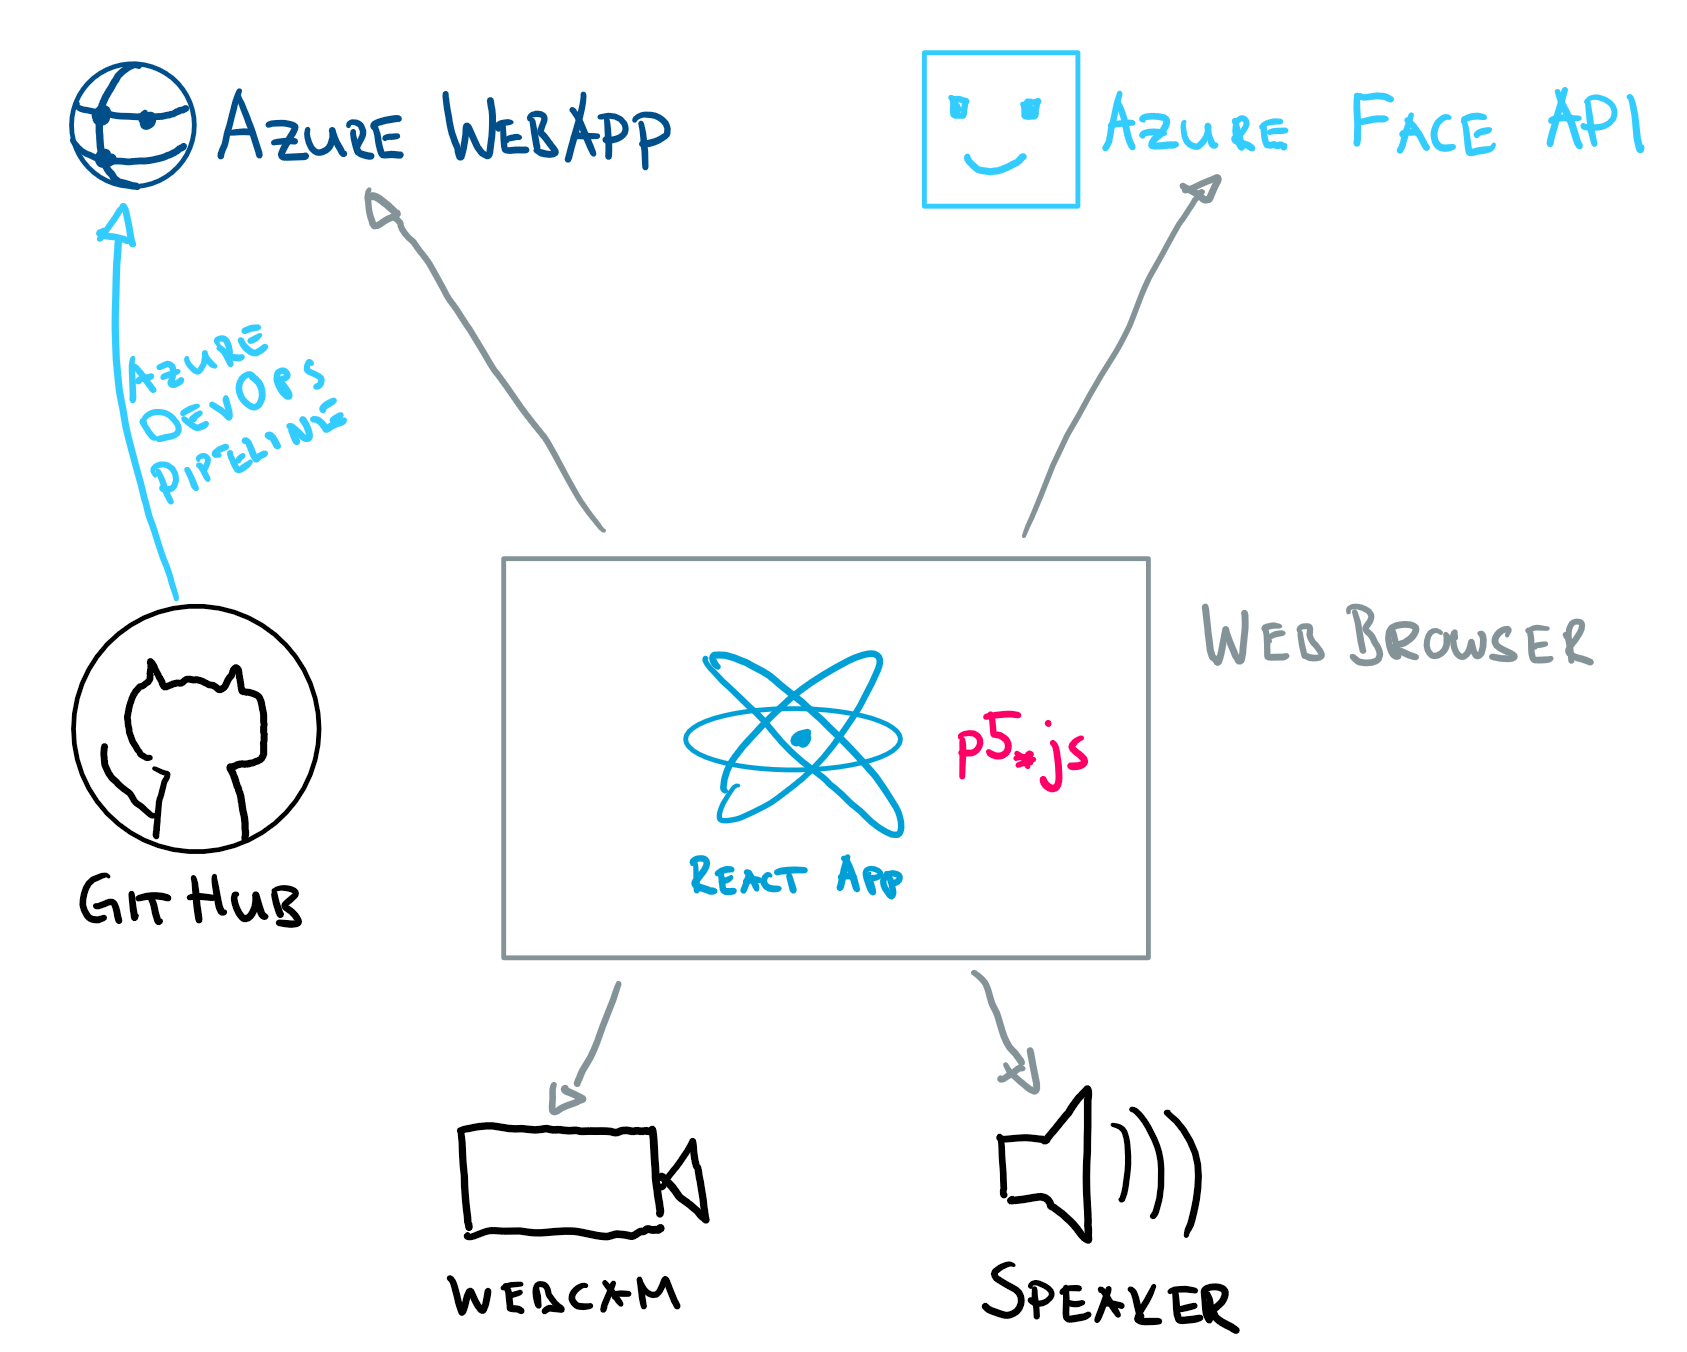 AZURE WEBAPP
AZURE FACE API
AZURE
DEVOPS
PIPELINE
WEB BROWSER
p5*js
REACT APP
GITHUB
WEBCAM
SPEAKER